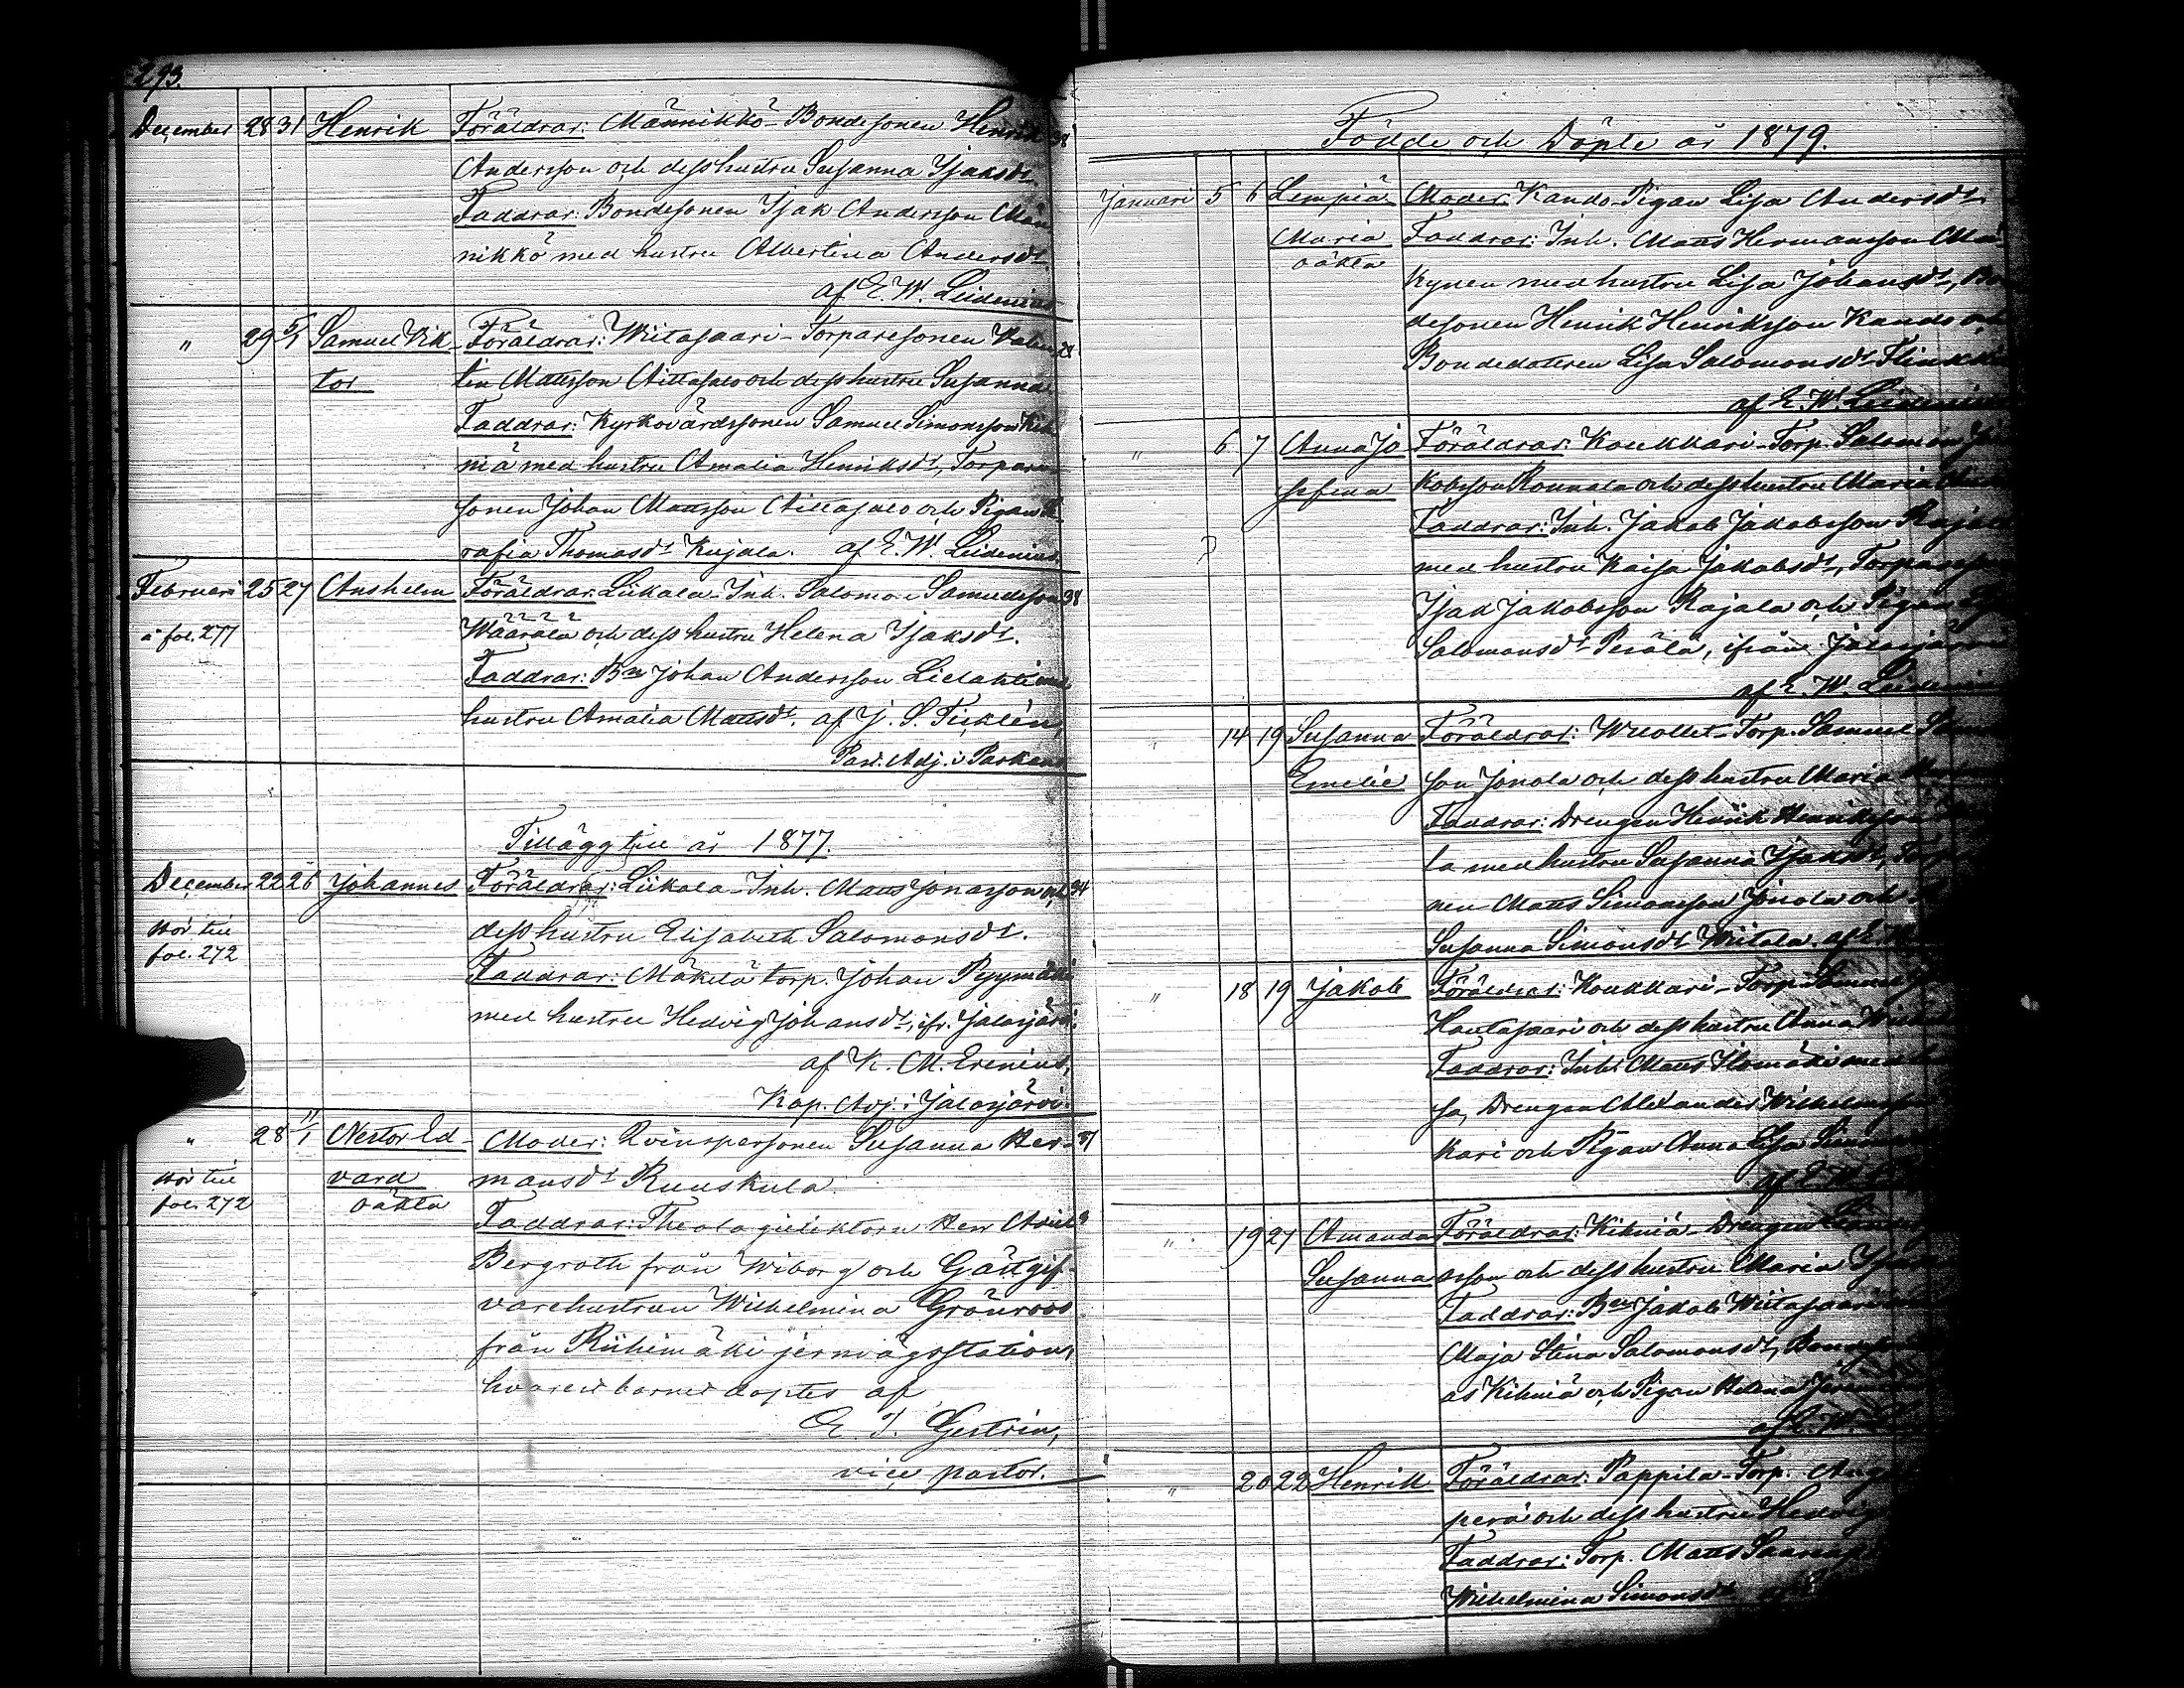 293.
December 28 31 Henrik Föräldrar: Männikkö-Bondesonen Henrik 38
Andersson och dess hustru Susanna Isaksdr.
Faddrar: Bondesonen Isak Andersson Män
nikkö med hustru Albertina Andersdr.
af E. W. Lidenius
" 29 5/1 Samuel Vik- Föräldrar: Wiitasaari-Torparesonen Valen 28
tor tin Mattsson Aittasalo och dess hustru Susanna
Faddrar: Kyrkovärdssonen Samuel Simonsson Kih
niä med hustru Amalia Henriksdr, Torpare
sonen Johan Mattsson Aittasalo och Pigan
rafia Thomasdr Kujala. af E. W. Lidenius.
Februari 25 27 Anshelm Föräldrar: Liikala-Inh. Salomon Samuelsson 38
å fol. 277 Wäärälä och dess hustru Helena Isaksdr.
Faddrar: Bn Johan Andersson Lielahti med
hustru Amalia Mattsdr. af J. S. Ticklén,
Past. Adj. i Parkano
Tillägg till år 1877.
December 22 26 Johannes Föräldrar: Liikala-Inh. Matts Jonasson och 34
Hör till dess hustru Elisabeth Salomonsdr.
fol. 272 Faddrar: Mäkelä torp. Johan Pyymäki
med hustru Hedvig Johansdr, ifr. Jalasjärvi.
af K. M. Erenius,
Kap. Adj. i Jalasjärvi.
" 28 11/1 Nestor Ed- Moder: Qvinspersonen Susanna Her- 37
Hör till vard mansdr Ruuskula.
fol. 272 oäkta Faddrar: Theologielektorn Herr
Bergroth från Wiborg och Gästgif-
varehustrun Wilhelmina Grönroos
från Riihimäki jernvägsstation,
hvarest barnet döptes af
E. J. Gestrin,
vice pastor.
Födde och Döpte år 1879.
Januari 5 6 Lempiä Moder: Kando-Pigan Lisa Andersdr.
Maria Faddrar: Inh. Matts Hermansson Mä
oäkta kynen med hustru Lisa Johansdr, Bon
desonen Henrik Henriksson Kando och
Bondedottren Lisa Salomonsdr Flinkki
af E. W. Lidenius
" 6 7 Anna Jo Föräldrar: Koukkari-Torp. Salomon Ja
sefina kobsson Rounala och dess hustru Maria
Faddrar: Inh. Jakob Jakobsson Rajala
med hustru Kaisa Jakobsdr, Torpareson
Isak Jakobsson Rajala och Pigan
Salomonsdr Perälä, ifrån Jalasjärvi
af E. W. Lidenius
" 14 19 Susanna Föräldrar: Wuollet-Torp. Samuel
Emelie son Jonola och dess hustru Maria
Faddrar: Drengen Henrik Henriksson
la med hustru Susanna Isaksdr,
nen Matts Simonsson Jonola och
Susanna Simonsdr Wiitala. af E. W.
" 18 19 Jakob Föräldrar: Koukkari-Torp. Samuel
Hautasaari och dess hustru Anna
Faddrar: Inh. Matts Ilomäki med
sa, Drengen Alexander Wilhelmsson
kari och Pigan Anna Lisa
af E. W.
" 19 21 Amanda Föräldrar: Kihniä-Drengen
Susanna sson och dess hustru Maria
Faddrar: Bn Jakob Wiitasaari
Maja Stina Salomonsdr,
as Kihniä och Pigan Helena
af E. W.
" 20 22 Henrik Föräldrar: Pappila-Torp.
perä och dess hustru Hedvig
Faddrar: Torp. Matts
Wilhelmina Simonsdr